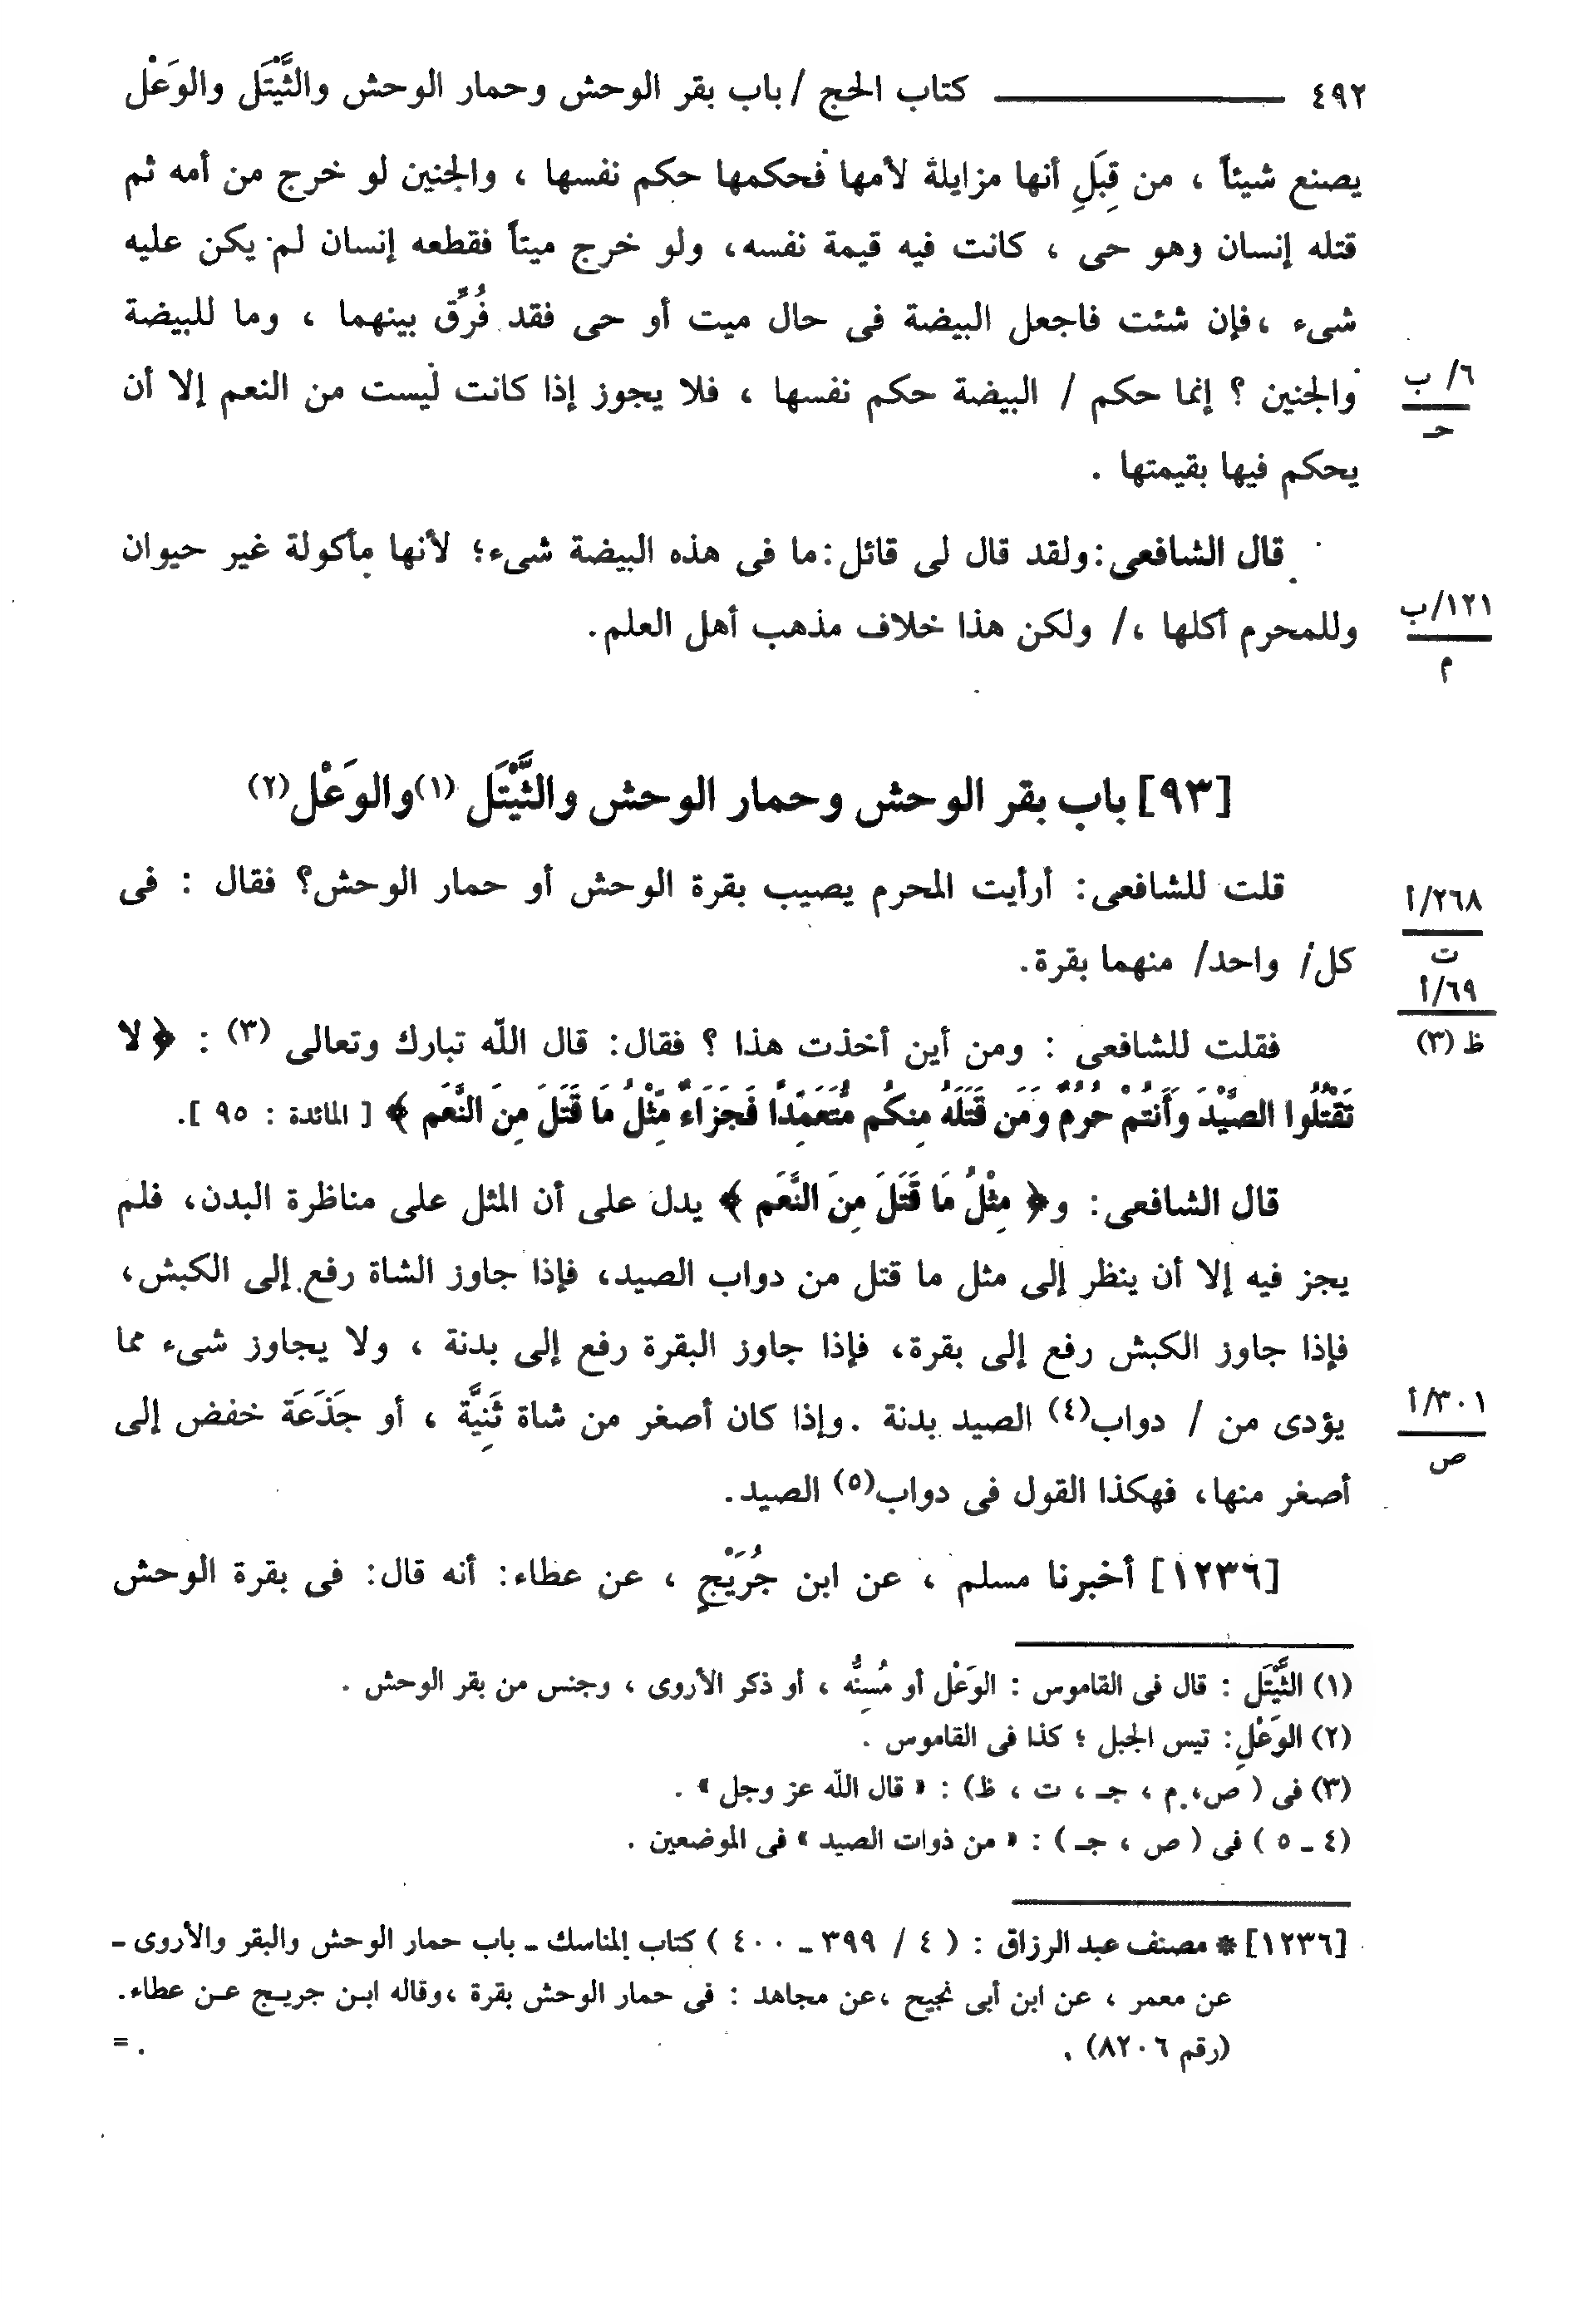 ٤٩٢ ــــــ كتاب الحج / باب بقر الوحش وحمار الوحش والثَّيْتَل والوَعْل
يصنع شيئاً ، من قِبَلِ أنها مزايلة لأمها فحكمها حكم نفسها ، والجنين لو خرج من أمه ثم
قتله إنسان وهو حى ، كانت فيه قيمة نفسه، ولو خرج ميتاً فقطعه إنسان لم يكن عليه
شىء ،فإن شئت فاجعل البيضة فى حال ميت أو حى فقد فُرِّق بينهما ، وما للبيضة
والجنين ؟ إنما حكم / البيضة حكم نفسها ، فلا يجوز إذا كانت ليست من النعم إلا أن
٦/ ب
حـ
يحكم فيها بقيمتها .
قال الشافعى:ولقد قال لى قائل:ما فى هذه البيضة شىء؛ لأنها مأكولة غير حيوان
وللمحرم أكلها ،/ ولكن هذا خلاف مذهب أهل العلم.
١٢١/ب
م
[٩٣] باب بقر الوحش وحمار الوحش والثَّيْتَل (١)والوَعْل(٢)
قلت للشافعى: أرأيت المحرم يصيب بقرة الوحش أو حمار الوحش؟ فقال : فى
٢٦٨/أ
ت
كل/ واحد/ منهما بقرة.
٦٩/أ
ظ (٣)
فقلت للشافعى : ومن أين أخذت هذا ؟ فقال: قال اللّه تبارك وتعالى (٣) : ﴿ لا
تَقْتُلُوا الصَّيْدَ وَأَنتُمْ حُرُمٌ وَمَن قَتَلَهُ مِنكُم مُّتَعَمِّدًا فَجَزَاءٌ مِّثْلُ مَا قَتَلَ مِنَ النَّعَمِ ﴾ [ المائدة : ٩٥ ].
قال الشافعى: و﴿ مِثْلُ مَا قَتَلَ مِنَ النَّعَمِ ﴾ يدل على أن المثل على مناظرة البدن، فلم
يجز فيه إلا أن ينظر إلى مثل ما قتل من دواب الصيد، فإذا جاوز الشاة رفع إلى الكبش،
فإذا جاوز الكبش رفع إلى بقرة، فإذا جاوز البقرة رفع إلى بدنة ، ولا يجاوز شىء مما
يؤدى من / دواب(٤) الصيد بدنة .وإذا كان أصغر من شاة ثَنِيَّة ، أو جَذَعَة خفض إلى
٣٠١/أ
ص
أصغر منها، فهكذا القول فى دواب(٥) الصيد.
[١٢٣٦] أخبرنا مسلم ، عن ابن جُرَيْجٍ ، عن عطاء: أنه قال: فى بقرة الوحش
(١) الثَّيْتَل : قال فى القاموس : الوَعْل أو مُسِنُّه ، أو ذكر الأروى ، وجنس من بقر الوحش .
(٢) الوَعْلِ: تيس الجبل ؛ كذا فى القاموس .
(٣) فى ( ص، م ، جـ ، ت ، ظ) : « قال اللّه عز وجل » .
(٤ ـ ٥ ) فى ( ص ، جـ ) : « من ذوات الصيد » فى الموضعين .
[١٢٣٦] * مصنف عبد الرزاق : ( ٤ / ٣٩٩ ـ ٤٠٠ ) كتاب المناسك ـ باب حمار الوحش والبقر والأروى ـ
عن معمر ، عن ابن أبى نجيح ،عن مجاهد : فى حمار الوحش بقرة ،وقاله ابـن جريـج عـن عطاء.
(رقم ٨٢٠٦) . =